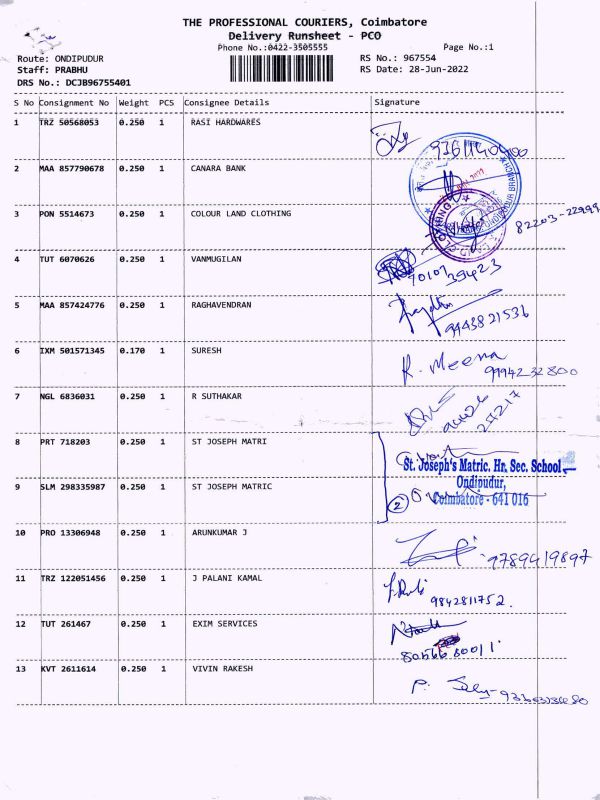 THE PROFESSIONAL COURIERS, Coimbatore
Delivery Runsheet - PCO
Phone No.:0422-3505555
Page No.:1
Route: ONDIPUDUR
RS No.: 967554
Staff: PRABHU
RS Date: 28-Jun-2022
DRS No.: DCJB96755401
S No Consignment No Weight PCS Consignee Details Signature
1 TRZ 50568053 0.250 1 RASI HARDWARES
2 MAA 857790678 0.250 1 CANARA BANK
3 PON 5514673 0.250 1 COLOUR LAND CLOTHING 82203-22999
4 TUT 6070626 0.250 1 VANMUGILAN
5 MAA 857424776 0.250 1 RAGHAVENDRAN 9443821536
6 IXM 501571345 0.170 1 SURESH R. Meena 9994232800
7 NGL 6836031 0.250 1 R SUTHAKAR
8 PRT 718203 0.250 1 ST JOSEPH MATRI
St. Joseph's Matric. Hr. Sec. School
Ondipudur,
9 SLM 298335987 0.250 1 ST JOSEPH MATRIC
2 Coimbatore - 641 016
10 PRO 13306948 0.250 1 ARUNKUMAR J 9789419897
11 TRZ 122051456 0.250 1 J PALANI KAMAL
9842811752.
12 TUT 261467 0.250 1 EXIM SERVICES
13 KVT 2611614 0.250 1 VIVIN RAKESH